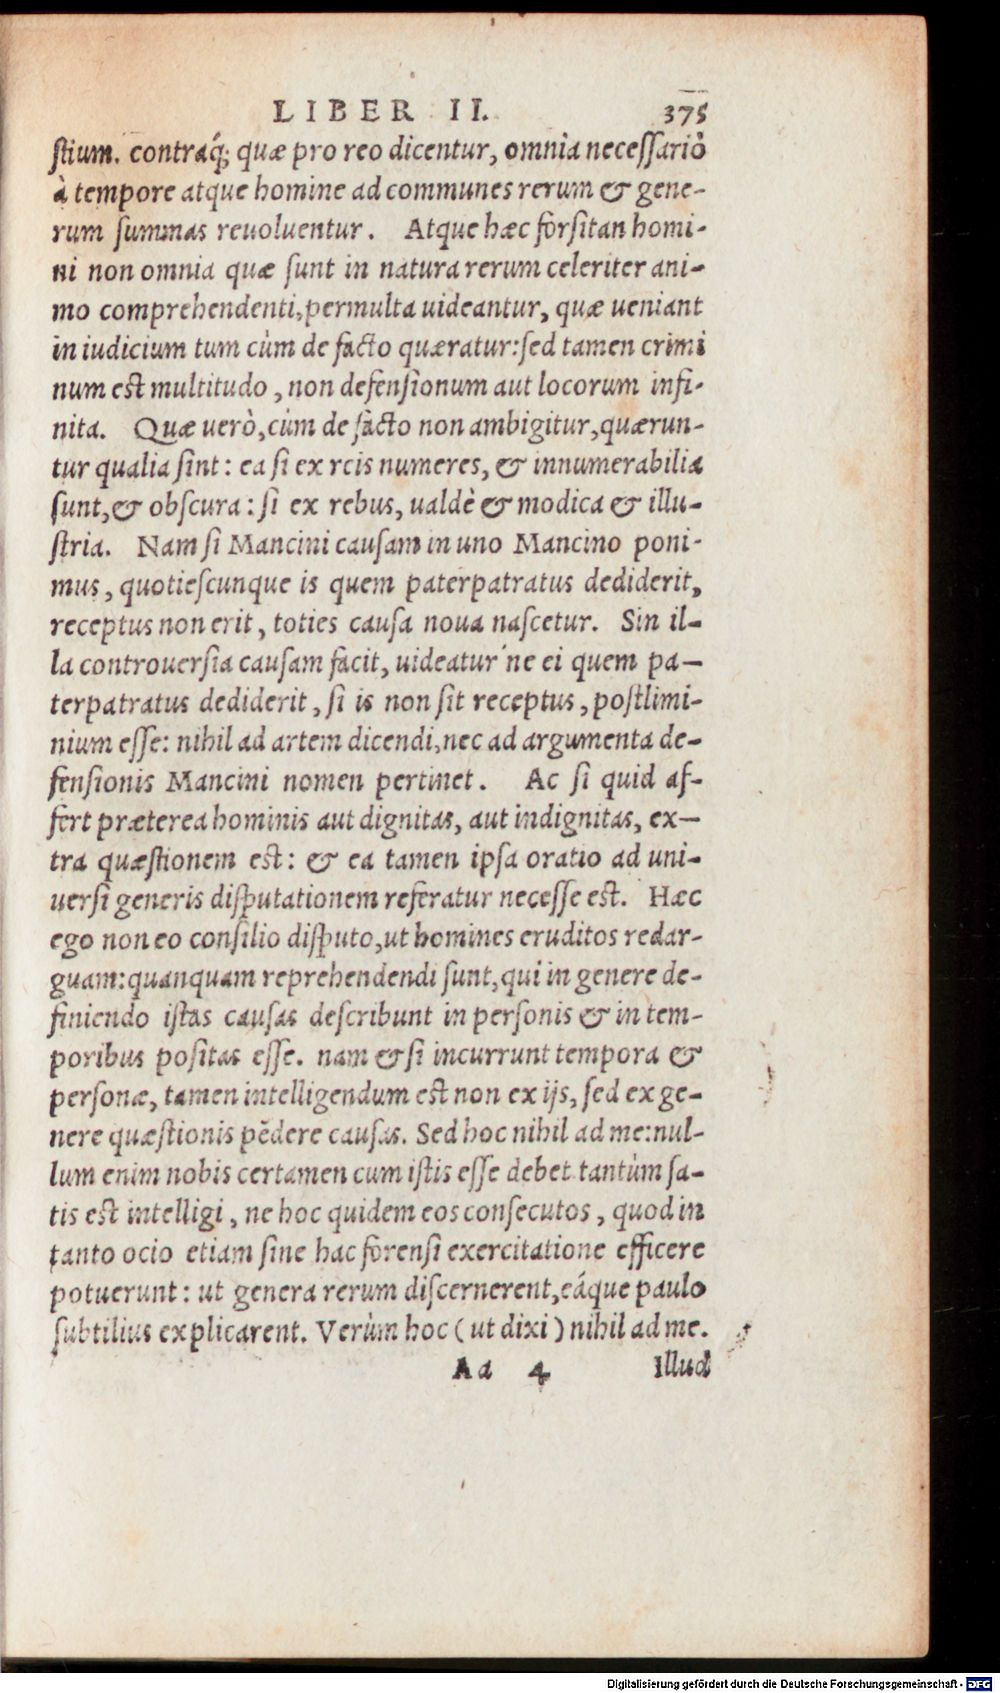 LIBER II. 375
stium. contraq́; quæ pro reo dicentur, omnia necessariò
à tempore atque homine ad communes rerum & gene-
rum summas reuoluentur. Atque hæc forsitan homi-
ni non omnia quæ sunt in natura rerum celeriter ani-
mo comprehendenti, permulta uideantur, quæ ueniant
in iudicium tum cùm de facto quæratur: sed tamen crimi
num est multitudo, non defensionum aut locorum infi-
nita. Quæ uerò, cùm de facto non ambigitur, quærun-
tur qualia sint: ea si ex reis numeres, & innumerabilia
sunt, & obscura: si ex rebus, ualdè & modica & illu-
stria. Nam si Mancini causam in uno Mancino poni-
mus, quotiescunque is quem paterpatratus dediderit,
receptus non erit, toties causa noua nascetur. Sin il-
la controuersia causam facit, uideatur'ne ei quem pa-
terpatratus dediderit, si is non sit receptus, postlimi-
nium esse: nihil ad artem dicendi, nec ad argumenta de-
fensionis Mancini nomen pertinet. Ac si quid af-
fert præterea hominis aut dignitas, aut indignitas, ex-
tra quæstionem est: & ea tamen ipsa oratio ad uni-
uersi generis disputationem referatur necesse est. Hæc
ego non eo consilio disputo, ut homines eruditos redar-
guam: quanquam reprehendendi sunt, qui in genere de-
finiendo istas causas describunt in personis & in tem-
poribus positas esse. nam & si incurrunt tempora &
personæ, tamen intelligendum est non ex ijs, sed ex ge-
nere quæstionis pēdere causas. Sed hoc nihil ad me: nul-
lum enim nobis certamen cum istis esse debet tantùm sa-
tis est intelligi, ne hoc quidem eos consecutos, quod in
tanto ocio etiam sine hac forensi exercitatione efficere
potuerunt: ut genera rerum discernerent, eáque paulo
subtilius explicarent. Verùm hoc (ut dixi) nihil ad me.
Aa 4 Illud
Digitalisierung gefördert durch die Deutsche Forschungsgemeinschaft - DFG